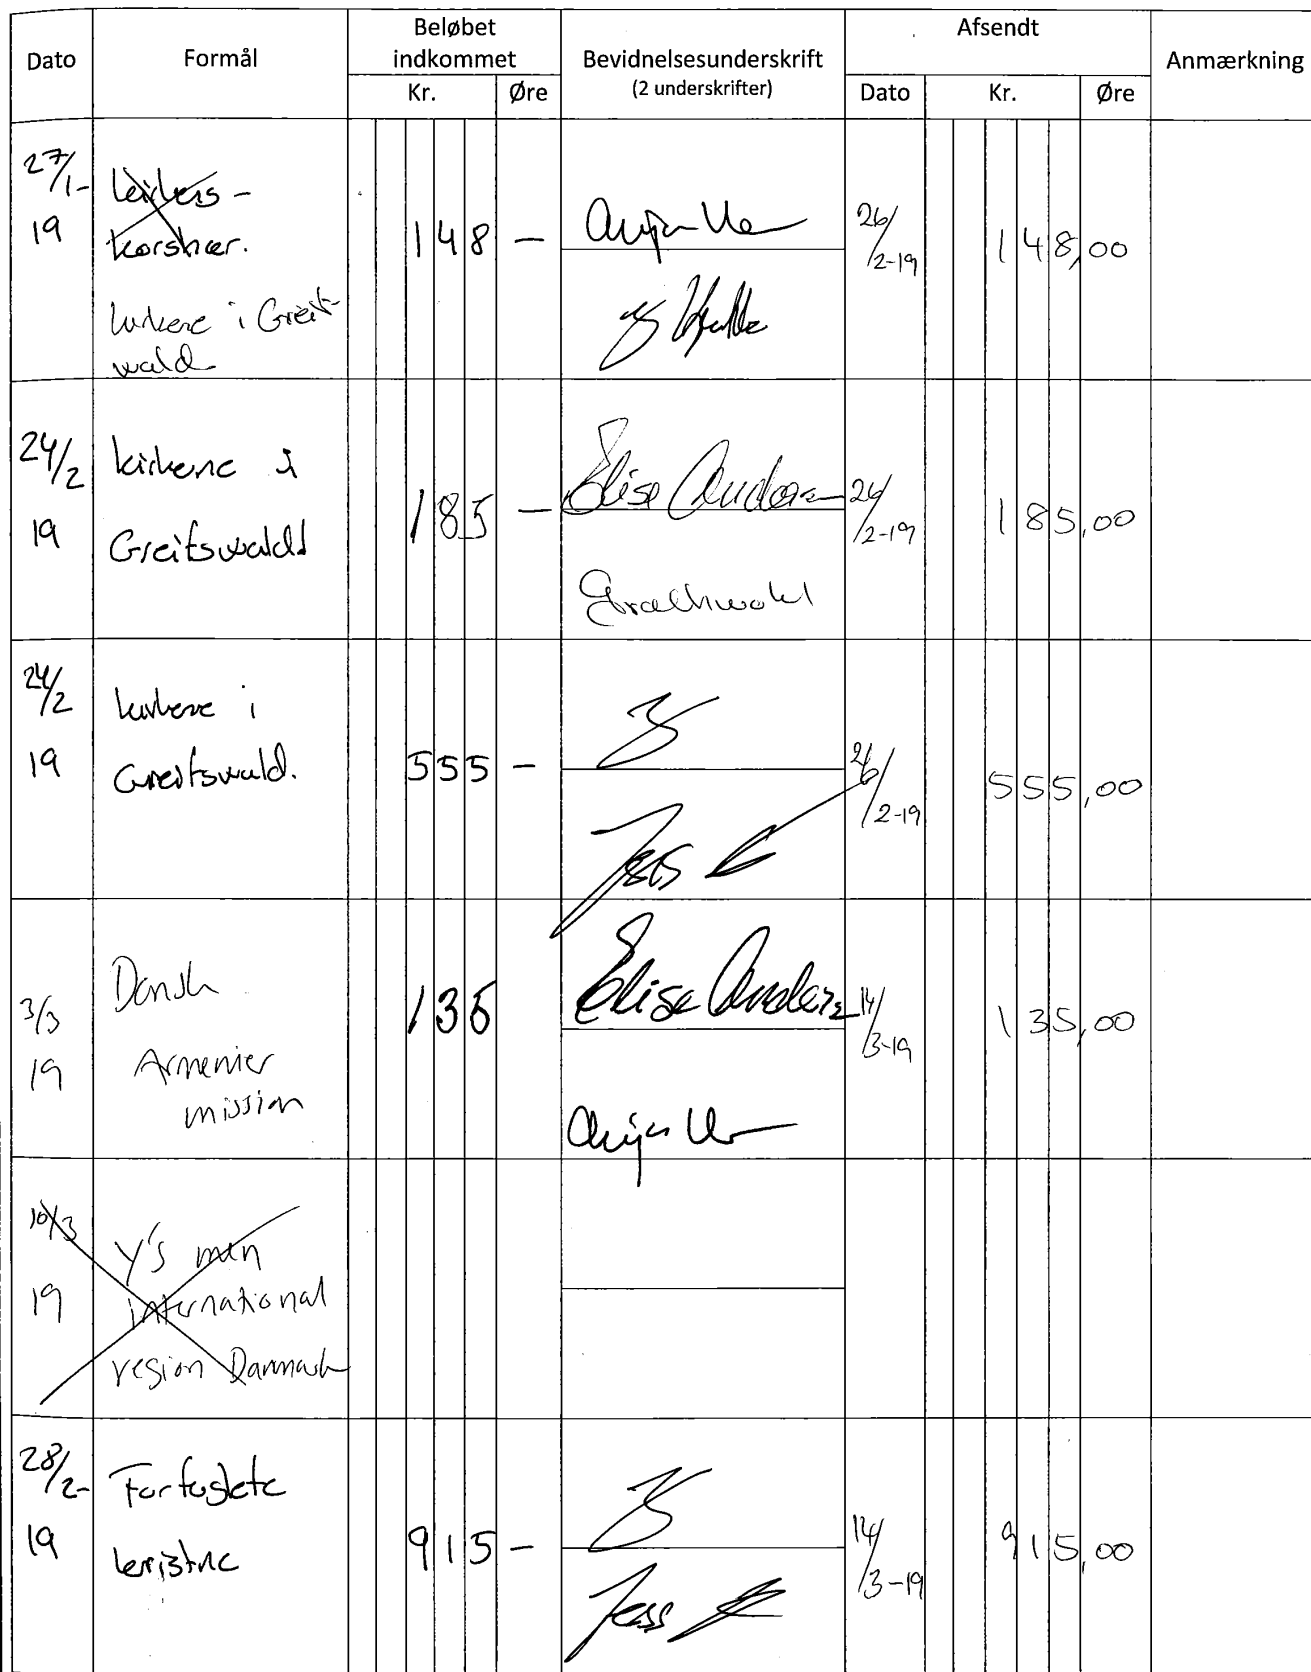 Dato Formål Beløbet indkommet Bevidnelsesunderskrift (2 underskrifter) Afsendt Anmærkning
Kr. Øre Dato Kr. Øre
27/1-19
kirkens -
korshær.
kirkene i Greifs-
wald
148 -
26/2-19
148,00
24/2 19
kirkene i
Greifswald
185 -
Elise
26/2-19
185,00
24/2 19
kirkene i
Greifswald.
555 -
Jess
26/2-19
555,00
3/3 19
Dansk
Armenier
mission
135
Elise
14/3-19
135,00
10/3 19
Y's men
international
region Danmark
28/2-19
Forfulgte
kristne
915 -
Jess
14/3-19
915,00